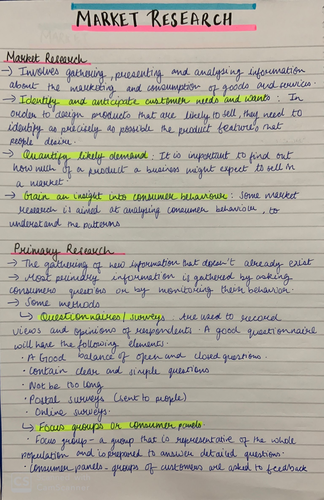 MARKET RESEARCH
Market Research
→ Involves gathering, presenting and analysing information
about the marketing and consumption of goods and services.
→ Identify and anticipate customer needs and wants : In
order to design products that are likely to sell, they need to
identify as precisely as possible the product features that
people desire.
→ Quantify likely demand : It is important to find out
how much of a product a business might expect to sell in
a market.
→ Gain an insight into consumer behaviour : Some market
research is aimed at analysing consumer behaviour, to
understand the patterns
Primary Research
→ The gathering of new information that doesn't already exist
→ Most primary information is gathered by asking
consumers questions or by monitoring their behavior.
→ Some methods
↳ Questionnaires / surveys : Are used to record
views and opinions of respondents. A good questionnaire
will have the following elements:
· A Good balance of open and closed questions.
· Contain clear and simple questions
· Not be too long
· Postal surveys (sent to people)
· Online surveys.
↳ Focus groups or consumer panels.
· Focus group - a group that is representative of the whole
population and is prepared to answer detailed questions.
· Consumer panels - groups of customers are asked to feedback